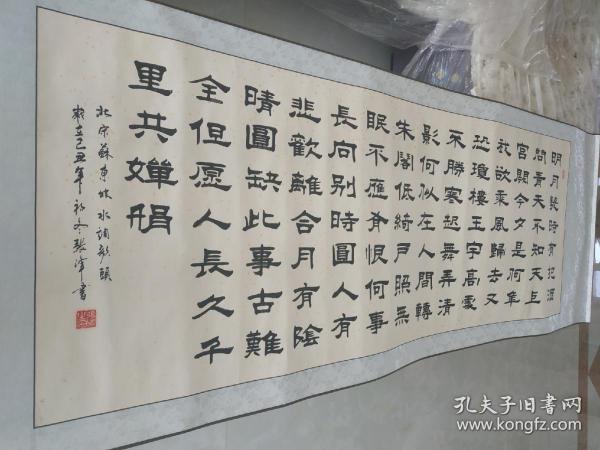 明月幾時有把酒
問青天不知天上
宮闕今夕是何年
我欲乘風歸去又
恐瓊樓玉宇高處
不勝寒起舞弄清
影何似在人間轉
朱閣低綺戶照無
眠不應有恨何事
長向別時圓人有
悲歡離合月有陰
晴圓缺此事古難
全但愿人長久千
里共嬋娟
北宋蘇東坡水調歌頭
歲在己丑年初冬張書
孔夫子旧書网
www.kongfz.com